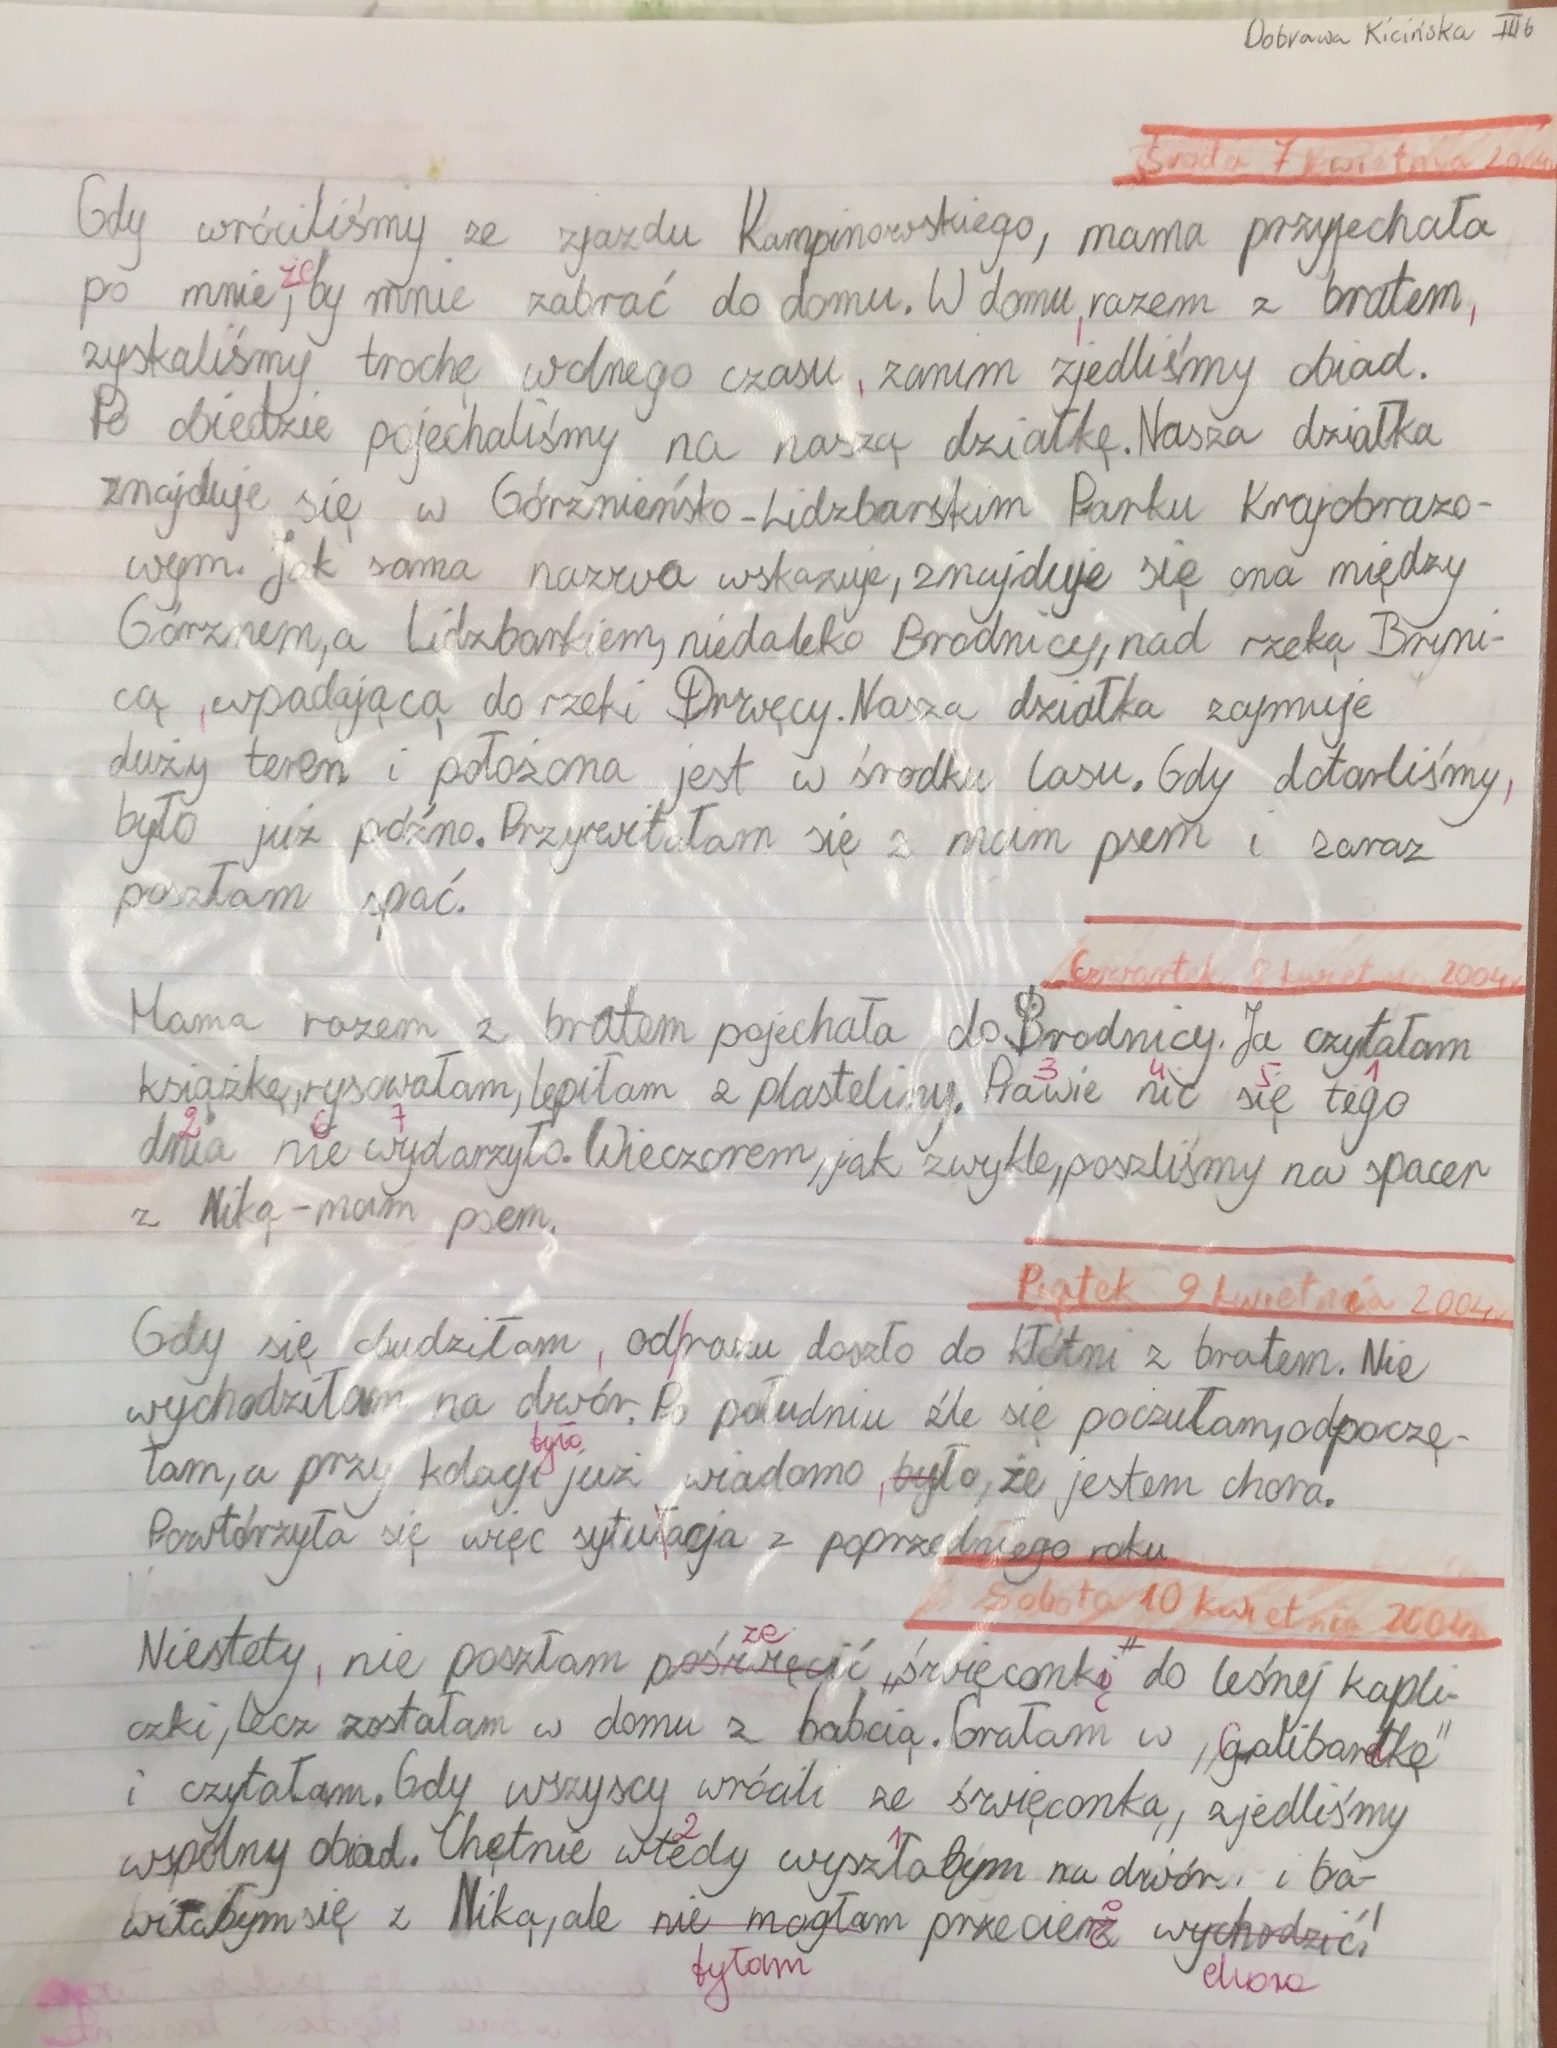 Dobrawa Kicińska IIIb
Środa 7 kwietnia 2004
Gdy wróciliśmy ze zjazdu Kampinowskiego, mama przyjechała
że
po mnie, by mnie zabrać do domu. W domu, razem z bratem,
zyskaliśmy trochę wolnego czasu, zanim zjedliśmy obiad.
Po obiedzie pojechaliśmy na naszą działkę. Nasza działka
znajduje się w Górznieńsko-Lidzbarskim Parku Krajobrazo-
wym. Jak sama nazwa wskazuje, znajduje się ona między
Górznem, a Lidzbarkiem, niedaleko Brodnicy, nad rzeką Bryni-
cą, wpadającą do rzeki Drwęcy. Nasza działka zajmuje
duży teren i położona jest w środku lasu. Gdy dotarliśmy,
było już późno. Przywitałam się z moim psem i zaraz
poszłam spać.
Czwartek 8 kwietnia 2004r
Mama razem z bratem pojechała do Brodnicy. Ja czytałam
3 4 5 1
książkę, rysowałam, lepiłam z plasteliny. Prawie nic się tego
2 6 7
dnia nie wydarzyło. Wieczorem, jak zwykle, poszliśmy na spacer
z Niką - moim psem.
Piątek 9 kwietnia 2004r
Gdy się obudziłam, od razu doszło do kłótni z bratem. Nie
wychodziłam na dwór. Po południu źle się poczułam, odpoczę-
było
łam, a przy kolacji już wiadomo, było, że jestem chora.
Powtórzyła się więc sytuacja z poprzedniego roku
Sobota 10 kwietnia 2004r
ze
Niestety, nie poszłam poświęcić „święconkę" do leśnej kapli-
czki, lecz zostałam w domu z babcią. Grałam w „Galibardkę"
i czytałam. Gdy wszyscy wrócili ze święconką, zjedliśmy
2 1
wspólny obiad. Chętnie wtedy wyszłabym na dwór i ba-
wiłabym się z Niką, ale nie mogłam przecież wychodzić!
byłam chora